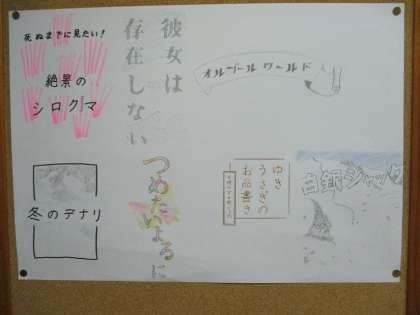 死ぬまでに見たい！
絶景の
シロクマ
彼女は
存在しない
オルゴールワールド
冬のデナリ
つめたいよるに
ゆき
うさぎの
お品書き
白銀ジャック